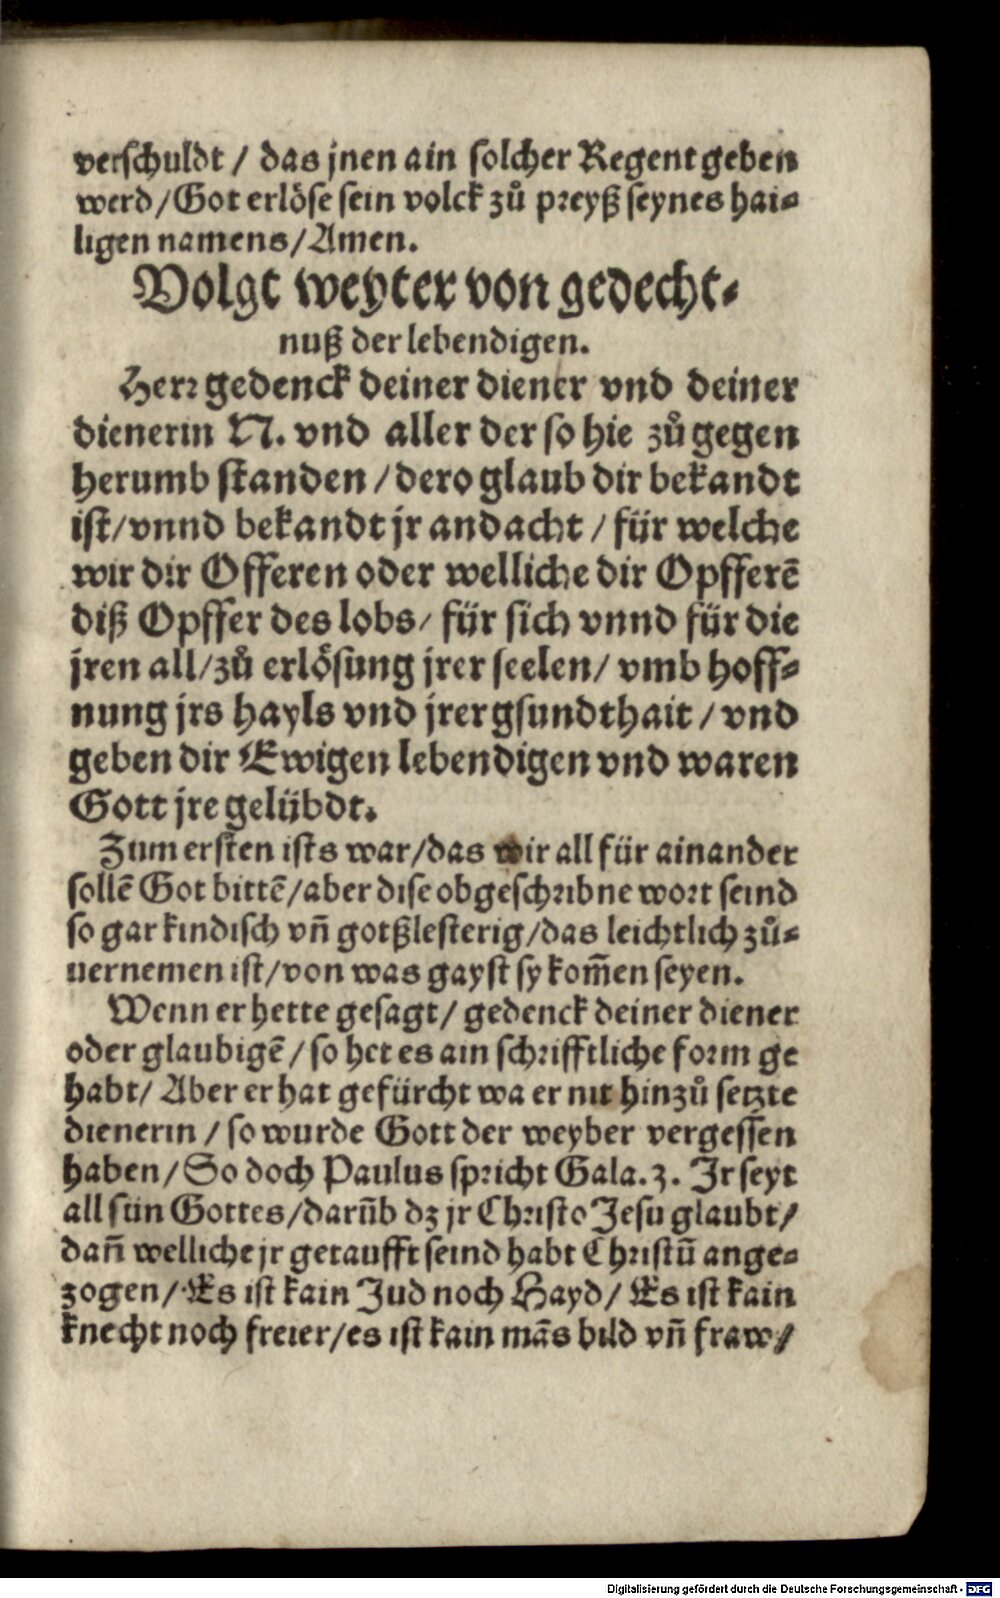 verschuldt / das jnen ain solcher Regent geben
werd / Got erlöse sein volck zů preyß seynes hai⸗
ligen namens / Amen.
Volgt weyter von gedecht⸗
nuß der lebendigen.
Herr gedenck deiner diener vnd deiner
dienerin N. vnd aller der so hie zů gegen
herumb standen / dero glaub dir bekandt
ist / vnnd bekandt jr andacht / für welche
wir dir Offeren oder welliche dir Opfferē
diß Opffer des lobs / für sich vnnd für die
jren all / zů erlösung jrer seelen / vmb hoff⸗
nung jrs hayls vnd jrer gsundthait / vnd
geben dir Ewigen lebendigen vnd waren
Gott jre gelübdt.
Zum ersten ists war / das wir all für ainander
sollē Got bittē / aber dise obgeschribne wort seind
so gar kindisch vn̄ gotßlesterig / das leichtlich zů⸗
uernemen ist / von was gayst sy kom̄en seyen.
Wenn er hette gesagt / gedenck deiner diener
oder glaubigē / so het es ain schrifftliche form ge
habt / Aber er hat gefürcht wa er nit hinzů setzte
dienerin / so wurde Gott der weyber vergessen
haben / So doch Paulus spricht Gala. 3. Jr seyt
all sün Gottes / darūb dz jr Christo Jesu glaubt /
dan̄ welliche jr getaufft seind habt Christū ange⸗
zogen / Es ist kain Jud noch Hayd / Es ist kain
knecht noch freier / es ist kain mās bild vn̄ fraw /
Digitalisierung gefördert durch die Deutsche Forschungsgemeinschaft - DFG